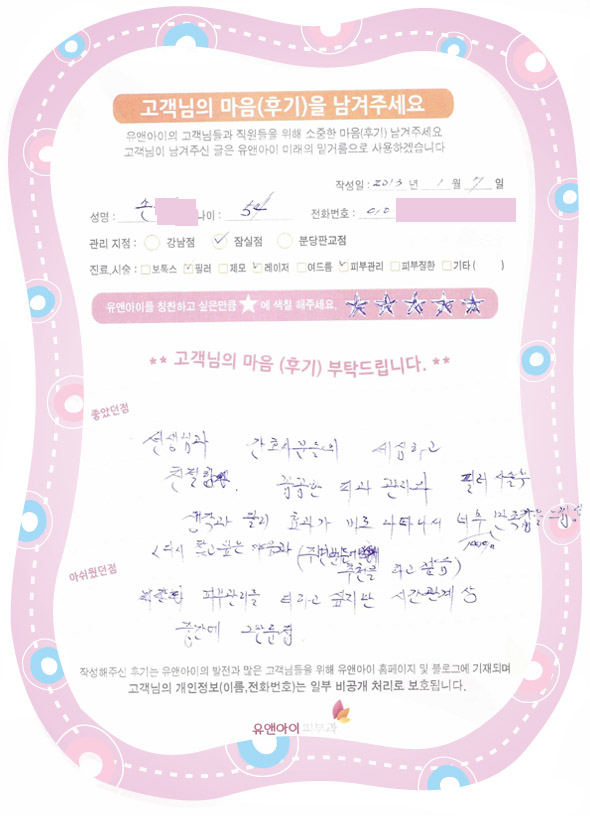 고객님의 마음(후기)을 남겨주세요
유앤아이의 고객님들과 직원들을 위해 소중한 마음(후기) 남겨주세요
고객님이 남겨주신 글은 유앤아이 미래의 밑거름으로 사용하겠습니다
작성일 : 2013 년 1 월 7 일
성명 : 손 나이 : 54 전화번호 : 010
관리 지점 : 강남점 잠실점 분당판교점
진료,시술 : 보톡스 필러 제모 레이저 여드름 피부관리 피부질환 기타 ( )
유앤아이를 칭찬하고 싶은만큼 에 색칠 해주세요.
** 고객님의 마음 (후기) 부탁드립니다. **
좋았던점
선생님과 간호사분들의 세심하고
친절함. 꼼꼼한 피과 관리와 필러 시술후
생각과 달리 효과가 바로 나타나서 너무 만족감을 느낌
100%
(다시 찾고 싶은 피부과 (주변분들에게
추천을 하고 싶음)
아쉬웠던점
피부관리를 더하고 싶지만 시간관계상
중간에 그만둔점
작성해주신 후기는 유앤아이의 발전과 많은 고객님들을 위해 유앤아이 홈페이지 및 블로그에 기재되며
고객님의 개인정보(이름,전화번호)는 일부 비공개 처리로 보호됩니다.
유앤아이 피부과